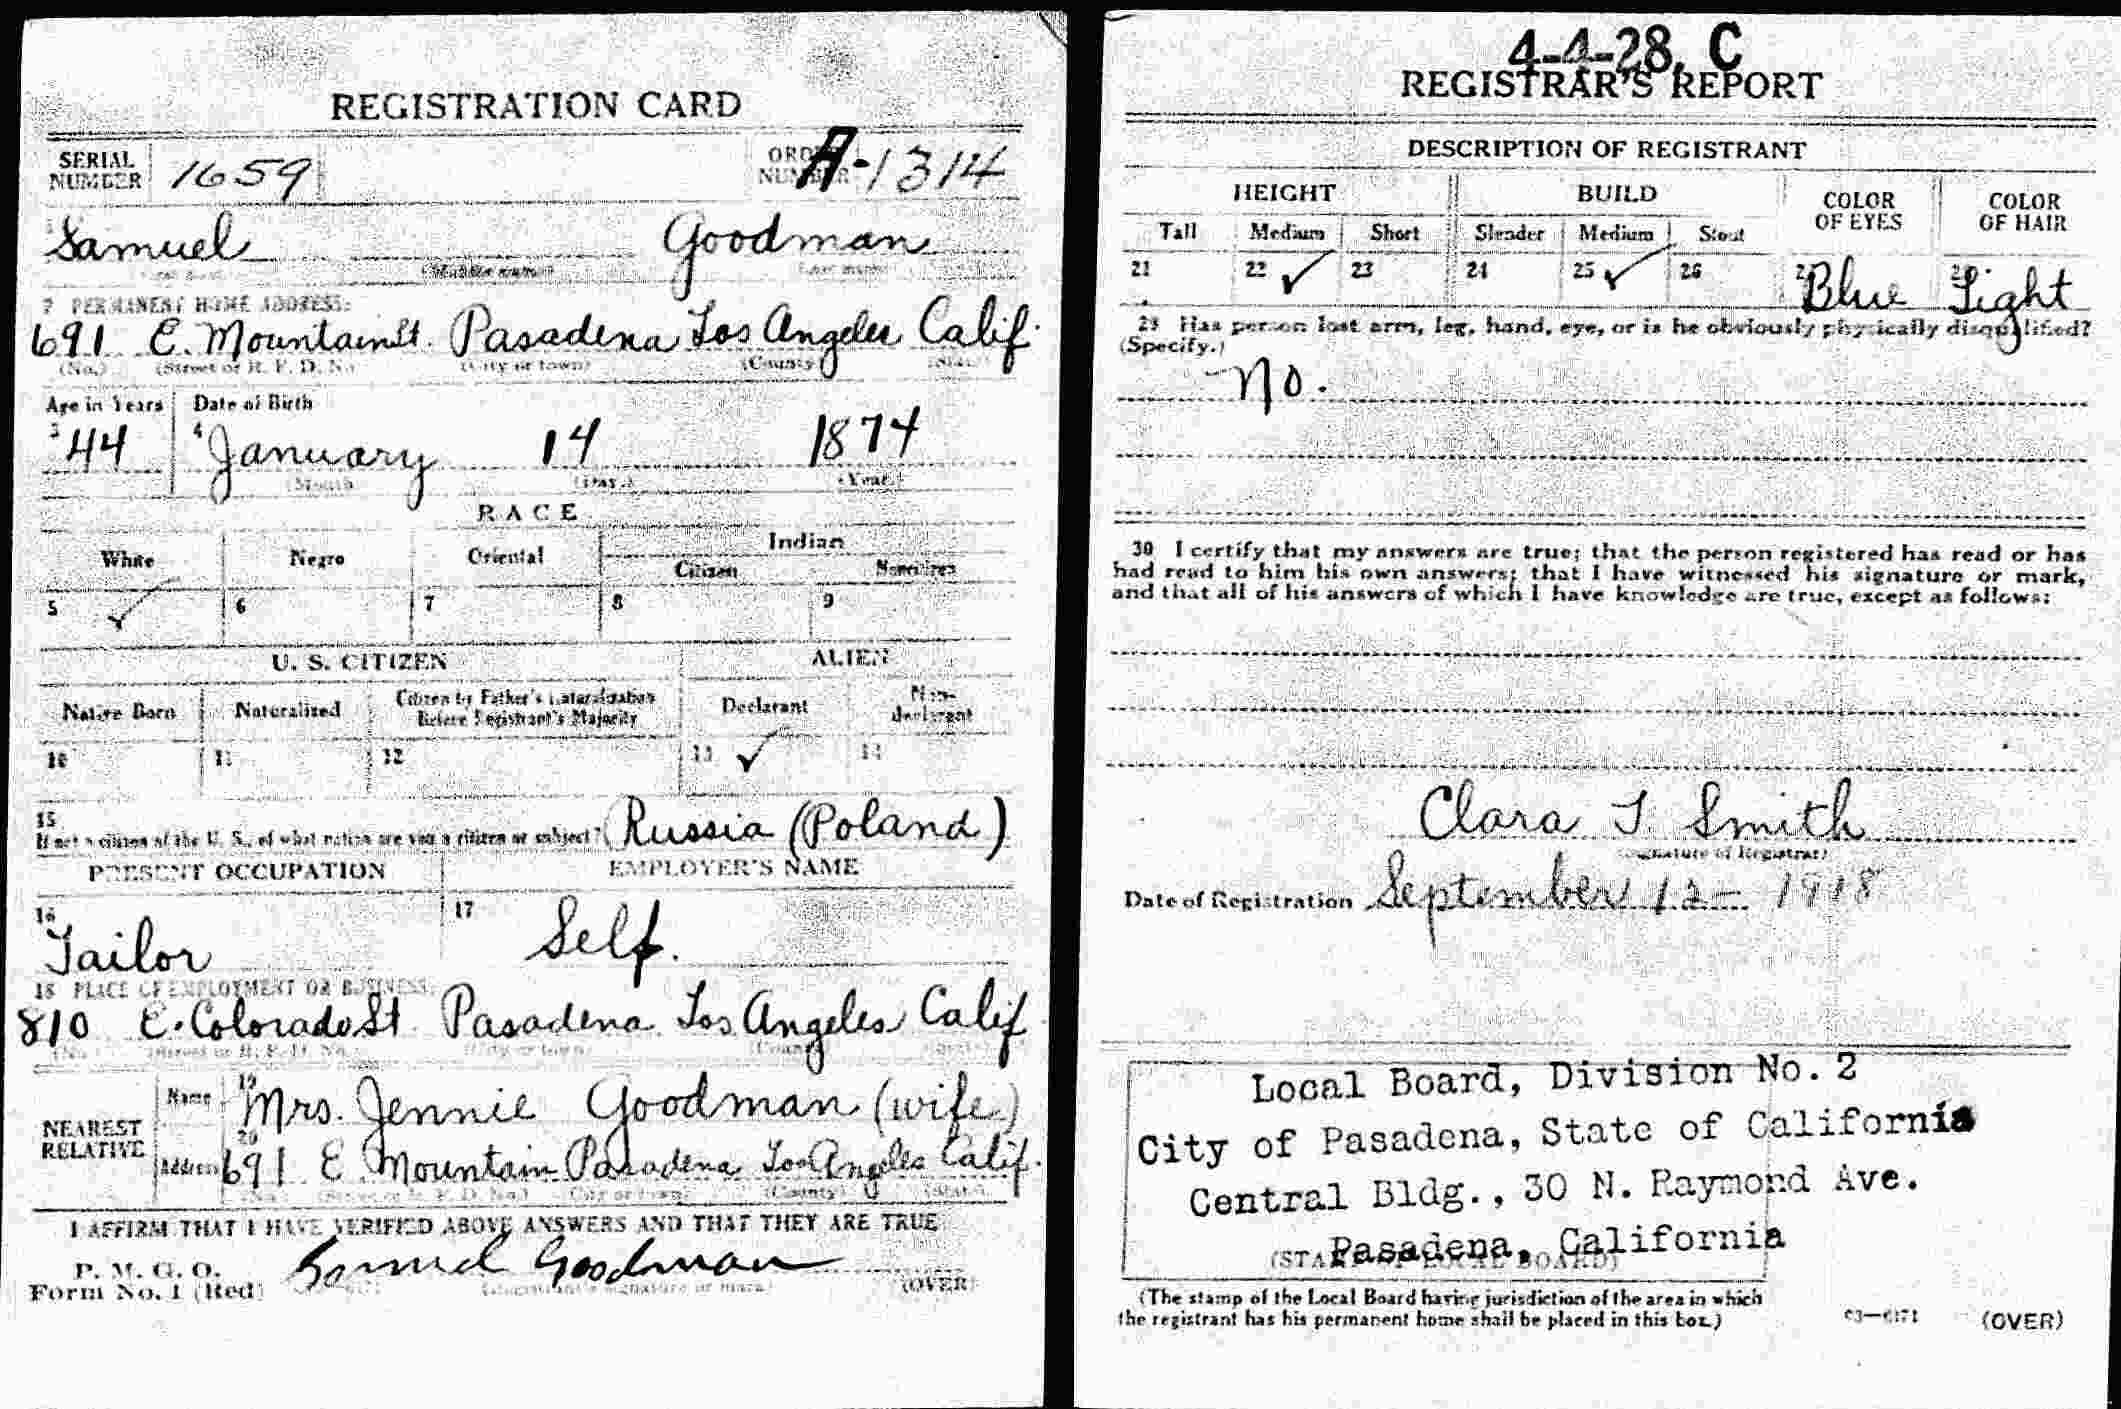 REGISTRATION CARD
SERIAL NUMBER 1659 ORDER NUMBER A-1314
Samuel Goodman
(Middle name) (Last name)
2 PERMANENT HOME ADDRESS:
691 E. Mountain St. Pasadena Los Angeles Calif.
(No.) (Street or R. F. D. No.) (City or town) (County) (State)
Age in Years Date of Birth
3 44 4 January 14 1874
(Month) (Day.) (Year.)
RACE
White Negro Oriental Indian
Citizen Noncitizen
5 ✓ 6 7 8 9
U. S. CITIZEN ALIEN
Native Born Naturalized Citizen by Father's Naturalization Before Registrant's Majority Declarant Non-declarant
10 11 12 13 ✓ 14
15
If not a citizen of the U. S., of what nation are you a citizen or subject? Russia (Poland)
PRESENT OCCUPATION EMPLOYER'S NAME
16 Tailor 17 Self.
18 PLACE OF EMPLOYMENT OR BUSINESS:
810 E. Colorado St. Pasadena Los Angeles Calif
(No.) (Street or R. F. D. No.) (City or town) (County) (State)
NEAREST RELATIVE Name 19 Mrs. Jennie Goodman (wife)
Address 20 691 E. Mountain Pasadena Los Angeles Calif.
(No.) (Street or R. F. D. No.) (City or town) (County) (State)
I AFFIRM THAT I HAVE VERIFIED ABOVE ANSWERS AND THAT THEY ARE TRUE
P. M. G. O.
Form No. 1 (Red) Samuel Goodman
(Registrant's signature or mark) (OVER)
4-4-28. C
REGISTRAR'S REPORT
DESCRIPTION OF REGISTRANT
HEIGHT BUILD COLOR OF EYES COLOR OF HAIR
Tall Medium Short Slender Medium Stout
21 22 ✓ 23 24 25 ✓ 26 27 Blue 28 Light
29 Has person lost arm, leg, hand, eye, or is he obviously physically disqualified?
(Specify.)
No.
30 I certify that my answers are true; that the person registered has read or has
had read to him his own answers; that I have witnessed his signature or mark,
and that all of his answers of which I have knowledge are true, except as follows:
Clara T. Smith
(Signature of Registrar)
Date of Registration September 12 - 1918
Local Board, Division No. 2
City of Pasadena, State of California
Central Bldg., 30 N. Raymond Ave.
Pasadena, California
(STAMP OF LOCAL BOARD)
(The stamp of the Local Board having jurisdiction of the area in which
the registrant has his permanent home shall be placed in this box.)
03—6171 (OVER)